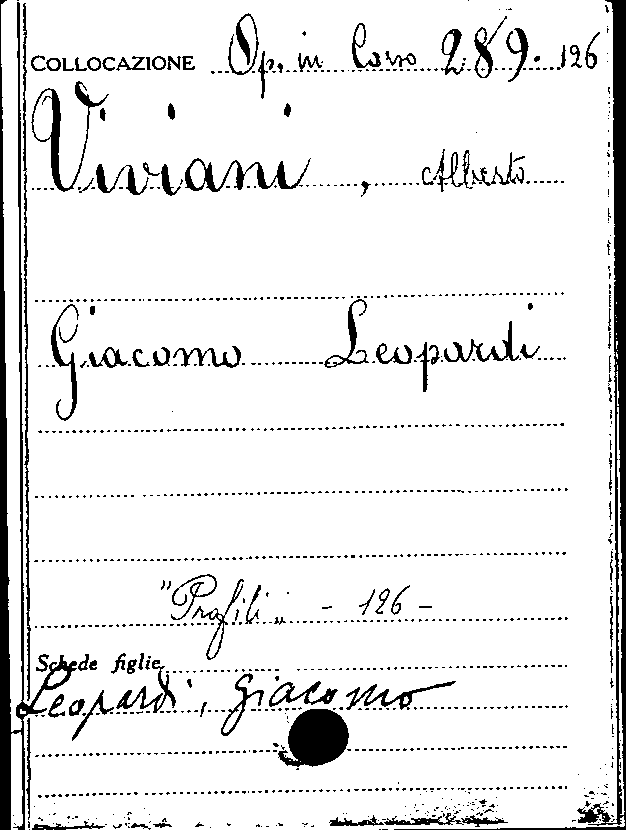 COLLOCAZIONE Op. in Corso 289. 126
Viviani, Alberto
Giacomo Leopardi
"Profili" - 126 -
Schede figlie
Leopardi, Giacomo